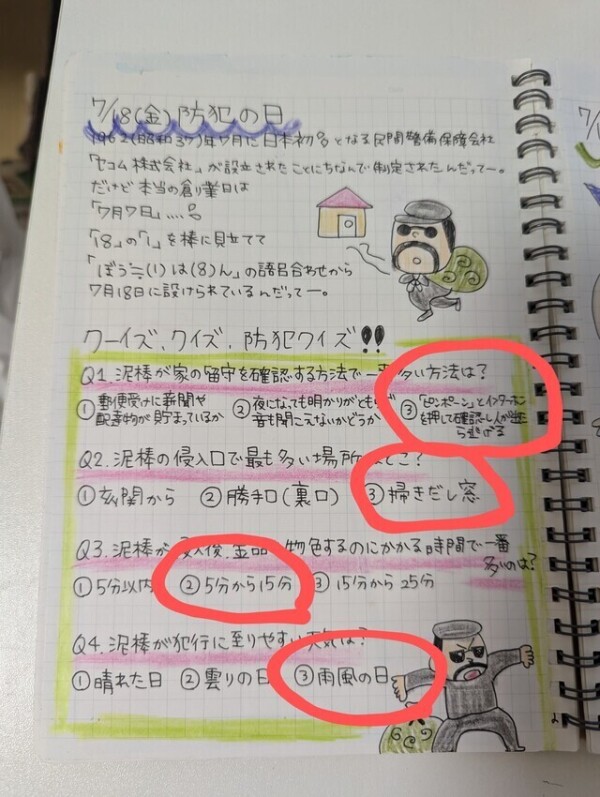 7/18(金)防犯の日
1962(昭和37)年7月に日本初。となる民間警備保障会社
「セコム株式会社」が設立されたことにちなんで制定されたんだってー。
だけど本当の創業日は
「7月7日」....。
「18」の「1」を棒に見立てて
「ぼう(1)は(8)ん」の語呂合わせから
7月18日に設けられているんだってー。
クーイズ、クイズ、防犯クイズ!!
Q1.泥棒が家の留守を確認する方法で一番多い方法は?
①郵便受けに新聞や配達物が貯まっているか ②夜になっても明かりがともらず音も聞こえないかどうか ③「ピンポーン」とインターホンを押して確認し人が出たら逃げる
Q2.泥棒の侵入口で最も多い場所はどこ?
①玄関から ②勝手口(裏口) ③掃きだし窓
Q3.泥棒が侵入後、金品 物色するのにかかる時間で一番多いのは?
①5分以内 ②5分から15分 ③15分から25分
Q4.泥棒が犯行に至りやすい天気は?
①晴れた日 ②曇りの日 ③雨風の日